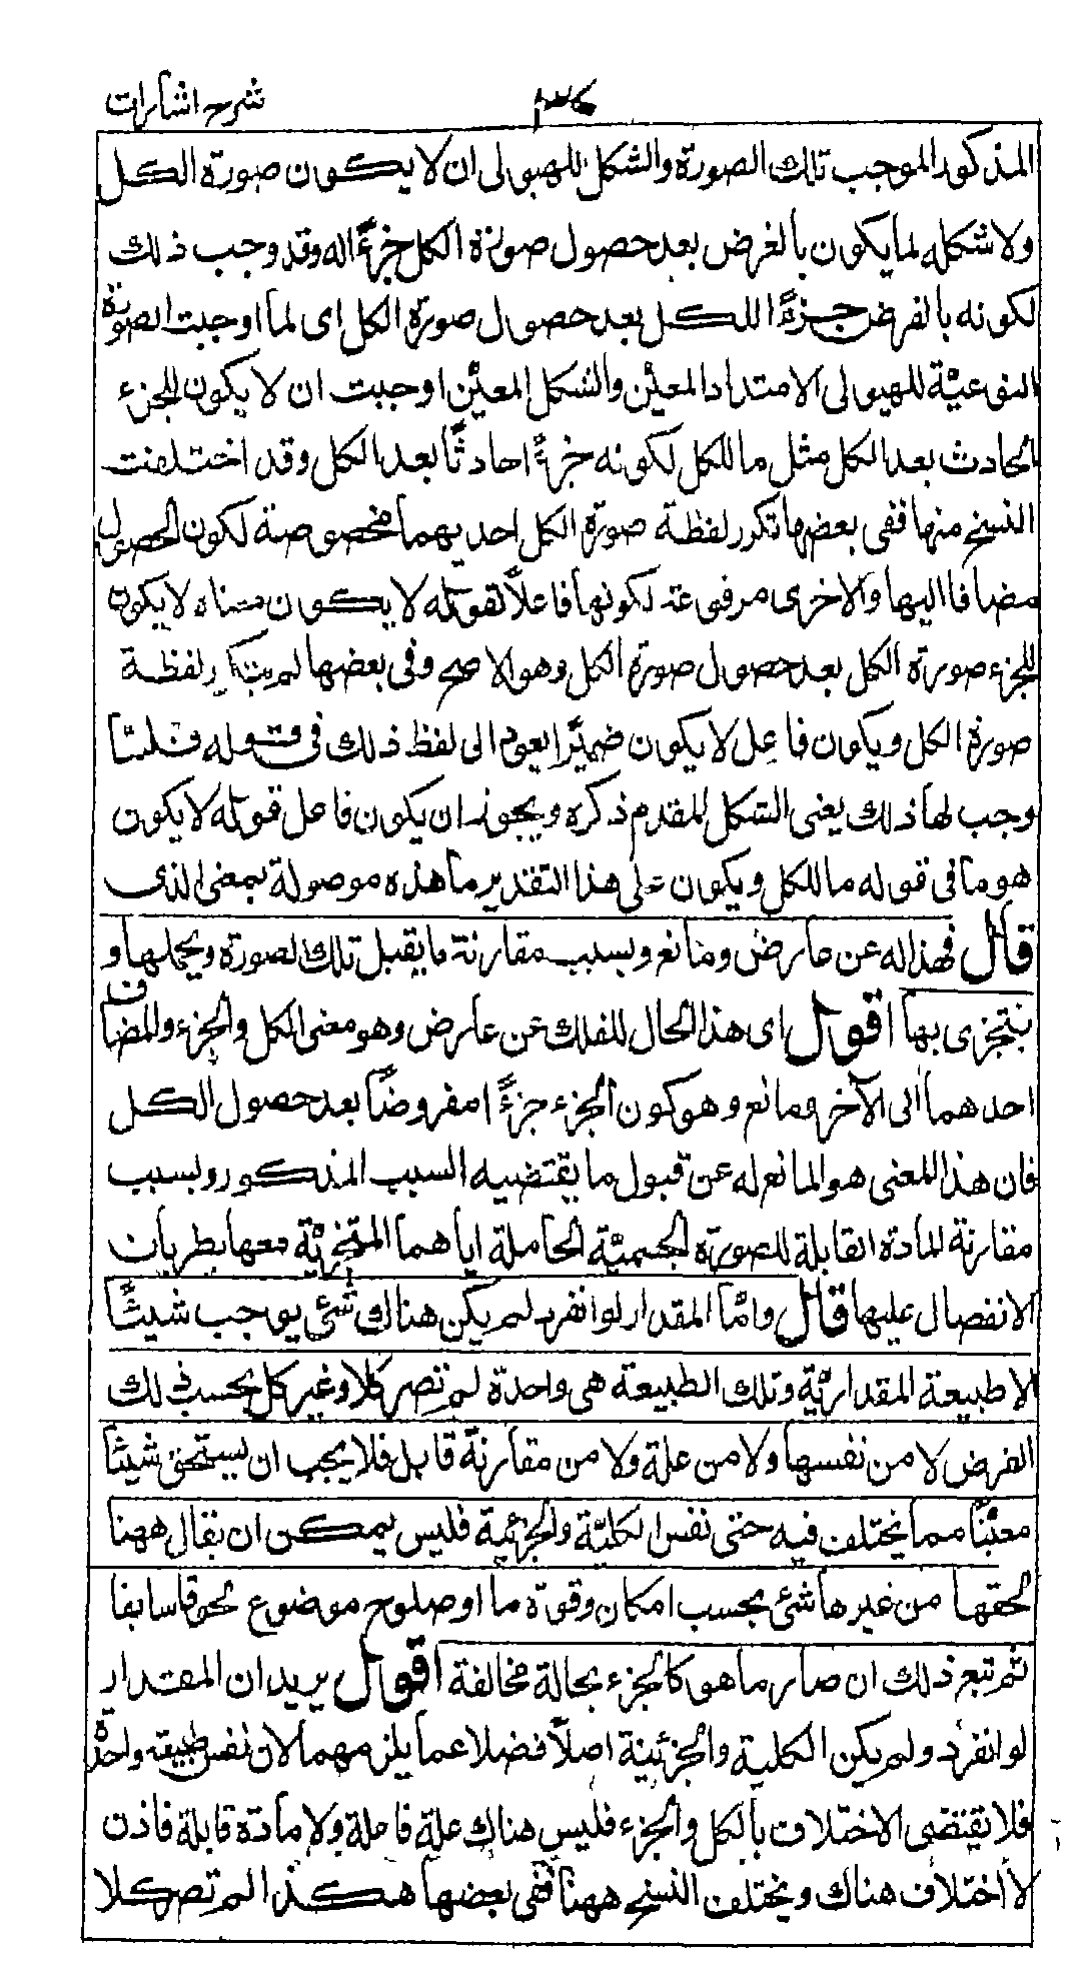 شرح اشارات
المذكور الموجب تلك الصورة والشكل للهيولى ان لا يكون صورة الكل
ولا شكله لما يكون بالفرض بعد حصول صورة الكل جزءًا له وقد وجب ذلك
لكونه بالفرض جزءًا للكل بعد حصول صورة الكل اى لما اوجبت الصورة
النوعيّة للهيولى الامتداد المعيّن والشكل المعيّن اوجبت ان لا يكون للجزء
الحادث بعد الكل مثل ما للكل لكونه جزءًا حادثًا بعد الكل وقد اختلفت
النسخ منها ففى بعضها تكرر لفظة صورة الكل احديهما مخصوصة لكون الحصول
مضافا اليها والاخرى مرفوعة لكونها فاعلاً لقوله لا يكون معناه لا يكون
للجزء صورة الكل بعد حصول صورة الكل وهو الاصح وفى بعضها لم يتكرر لفظة
صورة الكل ويكون فاعل لا يكون ضميرًا يعود الى لفظ ذلك فى قوله فلما
وجب لها ذلك يعنى الشكل المقدم ذكره ويجوز ان يكون فاعل قوله لا يكون
هو ما فى قوله ما للكل ويكون على هذا التقدير ما هذه موصولة بمعنى الذى
قال فهذا له عن عارض ومانع وبسبب مقارنة ما يقبل تلك الصورة ويحملها و
يتجزى بها اقول اى هذا الحال للفلك عن عارض وهو معنى الكل والجزء والمضاف
احدهما الى الآخر ومانع وهو كون الجزء جزءًا مفروضًا بعد حصول الكل
فان هذا المعنى هو المانع له عن قبول ما يقتضيه السبب المذكور وبسبب
مقارنة المادة القابلة للصورة الجسميّة الحاملة اياهما المتجزيّة معها بطريان
الانفصال عليها قال وامّا المقدار لو انفرد لم يكن هناك شئ يوجب شيئًا
الا طبيعة المقداريّة وتلك الطبيعة هى واحدة لم تصر كلا وغير كل بحسب ذلك
الفرض لا من نفسها ولا من علة ولا من مقارنة قابل فلا يجب ان يستحق شيئا
معيّنًا مما يختلف فيه حتى نفس الكليّة والجزئية فليس يمكن ان يقال ههنا
لحقها من غيرها شئ بحسب امكان وقوة ما او صلوح موضوع لحوقا سابقا
ثم تبع ذلك ان صار ما هو كالجزء بحالة مخالفة اقول يريد ان المقدار
لو انفرد ولم يكن الكلية والجزئية اصلاً فضلا عما يلزمهما لان نفس طبيعته واحدة
فلا يقتضى الاختلاف بالكل والجزء فليس هناك علة فاعلة ولا مادة قابلة فاذن
لا اختلاف هناك ويختلف النسخ ههنا ففى بعضها هكذا لم تصر كلا